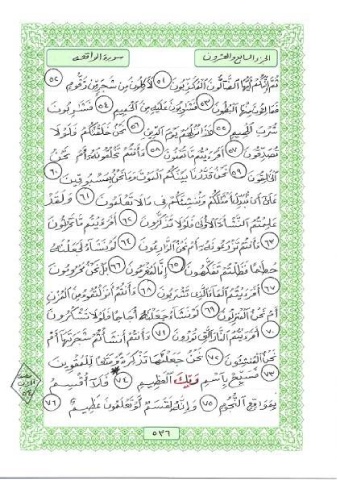 سورة الواقعة
الجزء السابع والعشرون
ثم إنكم أيها الضالون المكذبون ٥١ لآكلون من شجر من زقوم ٥٢
فمالئون منها البطون ٥٣ فشاربون عليه من الحميم ٥٤ فشاربون
شرب الهيم ٥٥ هذا نزلهم يوم الدين ٥٦ نحن خلقناكم فلولا
تصدقون ٥٧ أفرءيتم ما تمنون ٥٨ ءأنتم تخلقونه أم نحن
الخالقون ٥٩ نحن قدرنا بينكم الموت وما نحن بمسبوقين ٦٠
على أن نبدل أمثالكم وننشئكم في ما لا تعلمون ٦١ ولقد
علمتم النشأة الأولى فلولا تذكرون ٦٢ أفرءيتم ما تحرثون
٦٣ ءأنتم تزرعونه أم نحن الزارعون ٦٤ لو نشاء لجعلناه
حطاما فظلتم تفكهون ٦٥ إنا لمغرمون ٦٦ بل نحن محرومون
٦٧ أفرءيتم الماء الذي تشربون ٦٨ ءأنتم أنزلتموه من المزن
أم نحن المنزلون ٦٩ لو نشاء جعلناه أجاجا فلولا تشكرون
٧٠ أفرءيتم النار التي تورون ٧١ ءأنتم أنشأتم شجرتها أم
نحن المنشئون ٧٢ نحن جعلناها تذكرة ومتاعا للمقوين
٧٣ فسبح باسم ربك العظيم ٧٤ فلا أقسم
بمواقع النجوم ٧٥ وإنه لقسم لو تعلمون عظيم ٧٦
٥٣٦